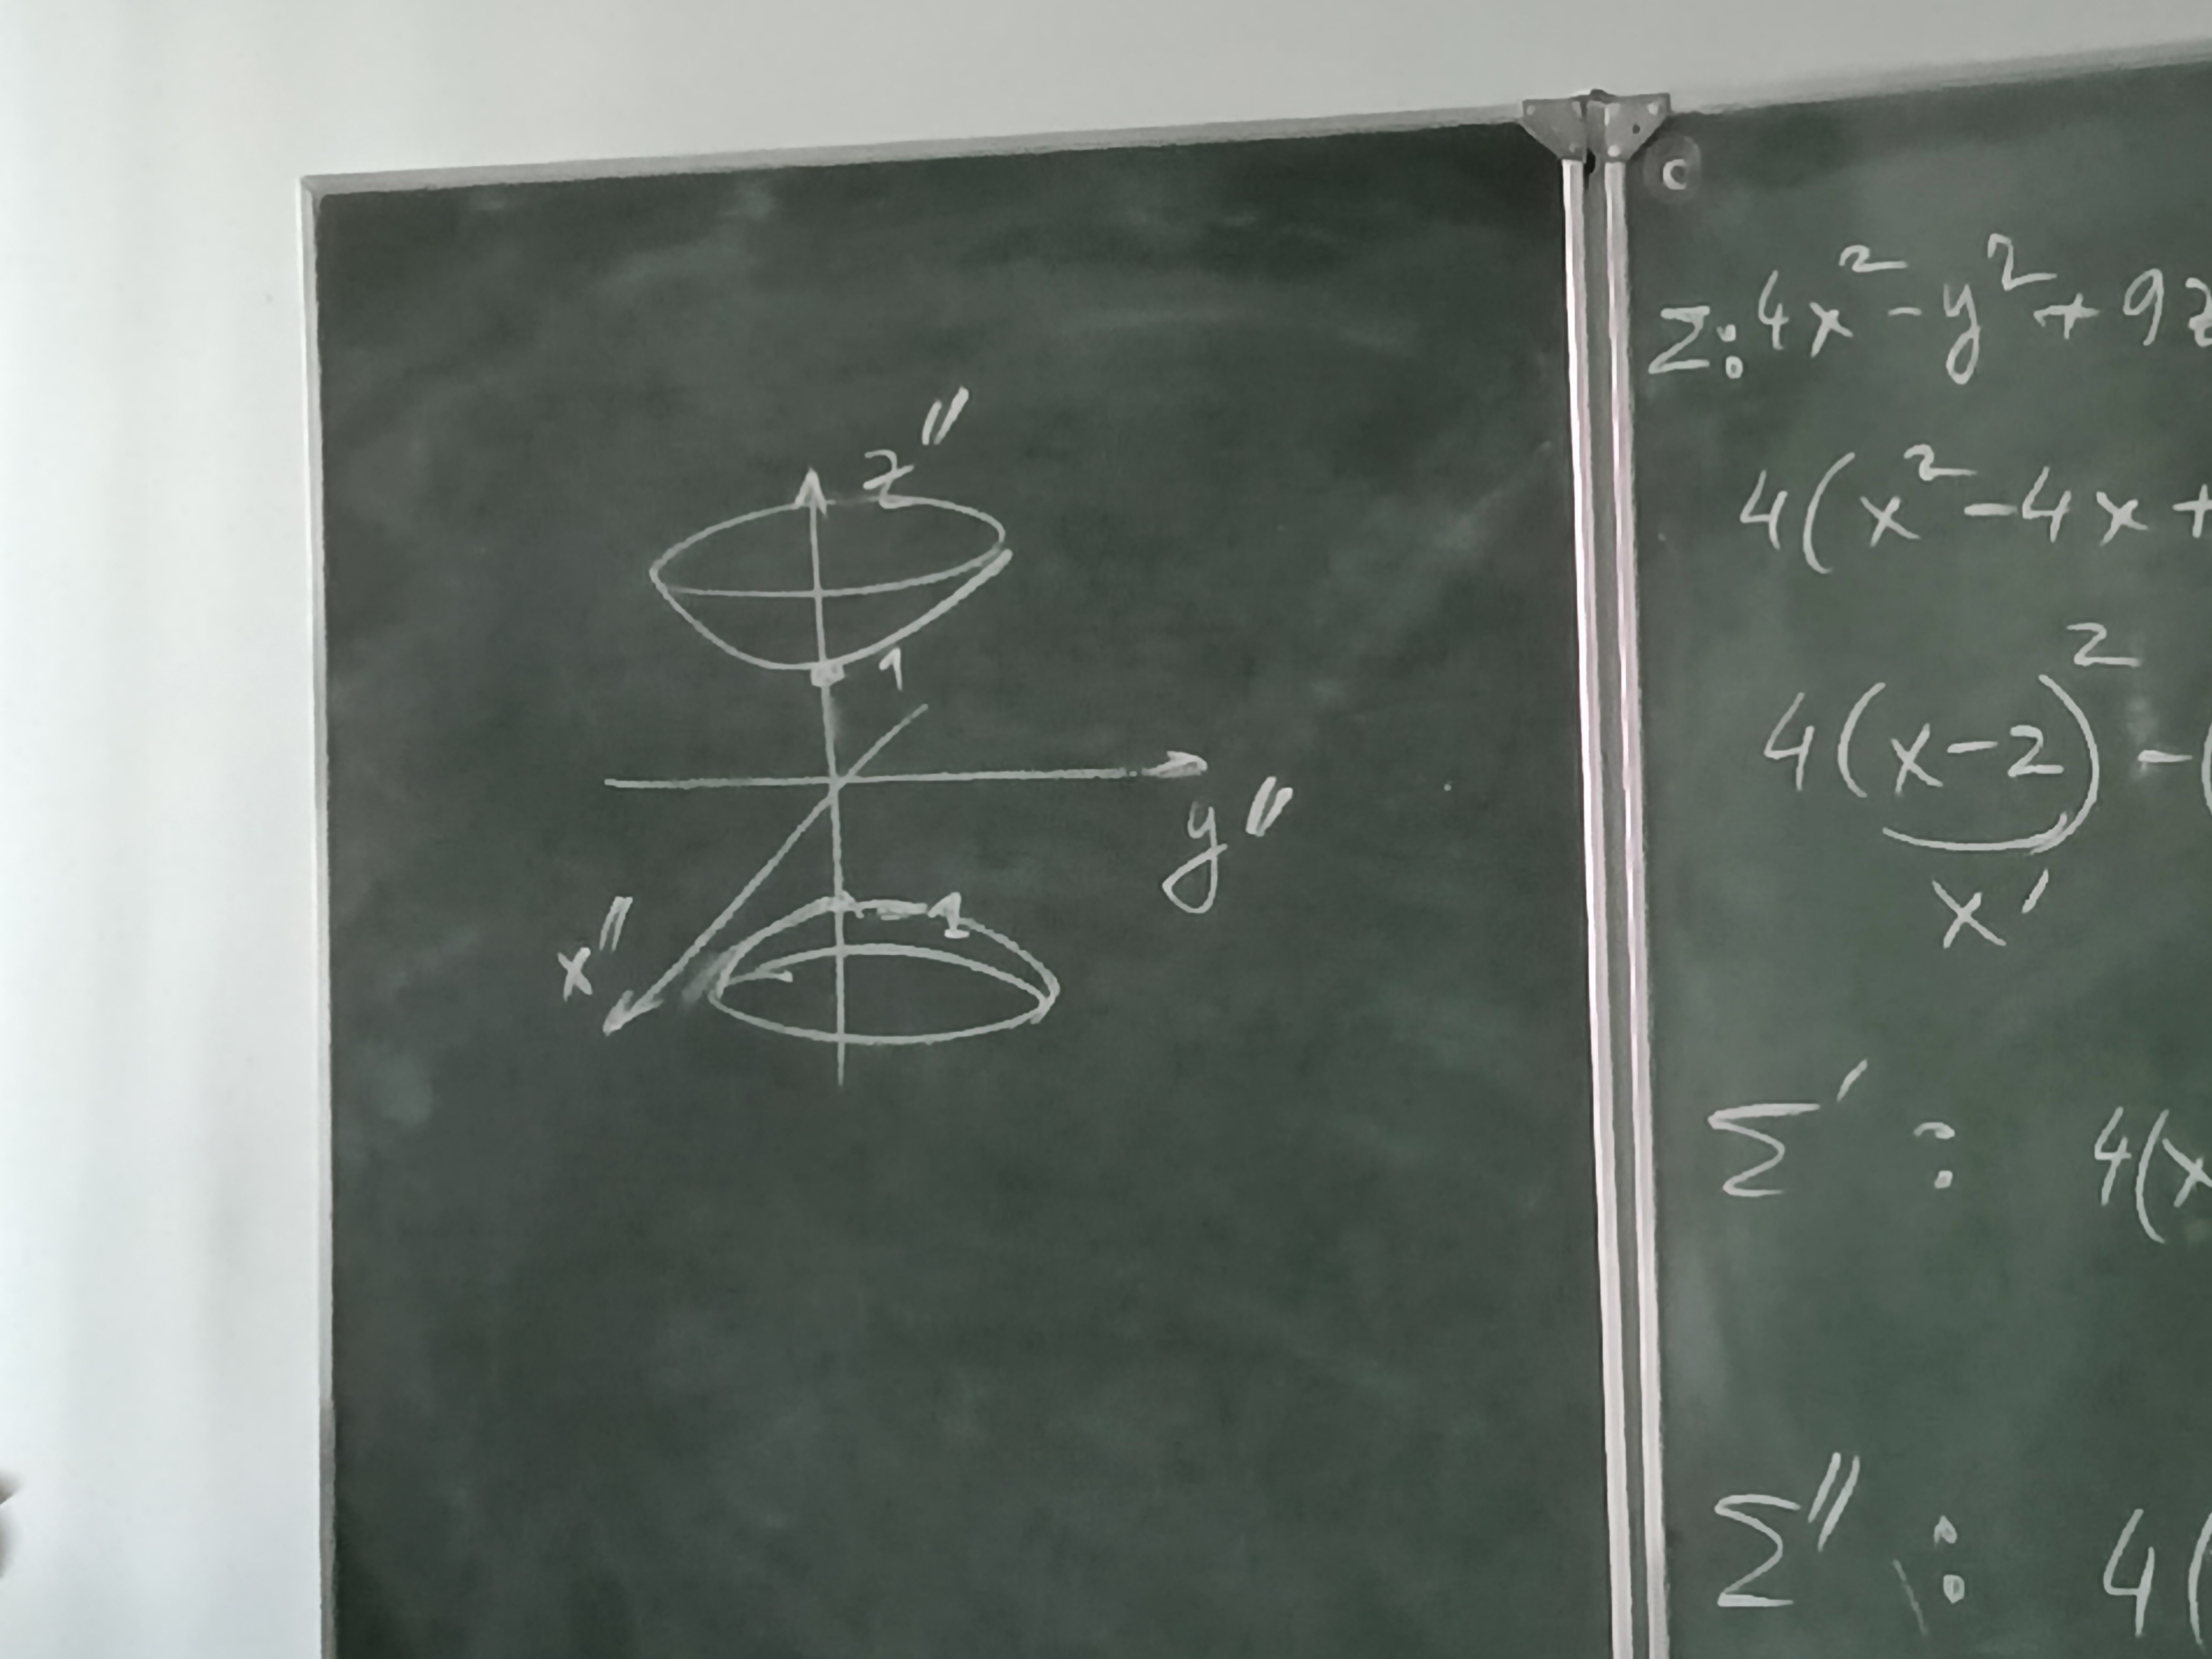 z''
1
y''
-1
x''
Σ: 4x² - y² + 9z
4(x² - 4x +
4(x-2)² - (
x'
Σ' : 4(x
Σ'' : 4(